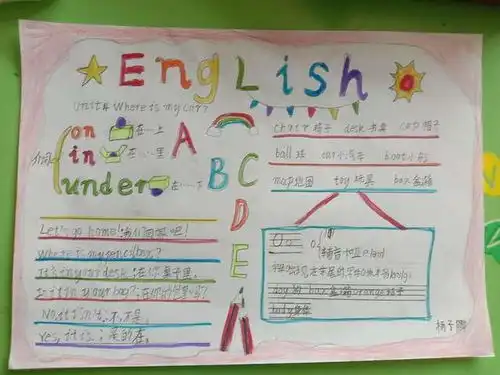 English
Unit4 Where is my car?
介词
on 在…上
in 在…里
under 在…下
A
B
C
D
E
chair 椅子 desk 书桌 cap 帽子
ball 球 car 小汽车 boat 小船
map 地图 toy 玩具 box 盒/箱
Let's go home!我们回家吧!
Where is my pencil box?
It's in your desk.在你桌子里。
Is it in your bag?在你的包里吗?
No, it isn't.不,不是。
Yes, it is.是的在。
Oo
dog 狗 box 盒/箱 orange 橙子
body 身体